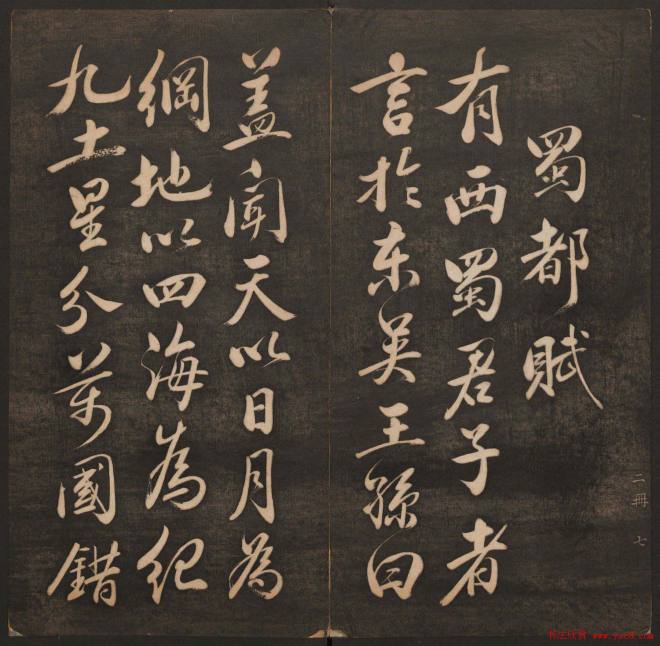 蜀都賦
有西蜀君子者
言於东吴王孫曰
盖聞天以日月為
綱地以四海為紀
九土星分萬國錯
二冊 七
书法欣赏 www.yac8.com